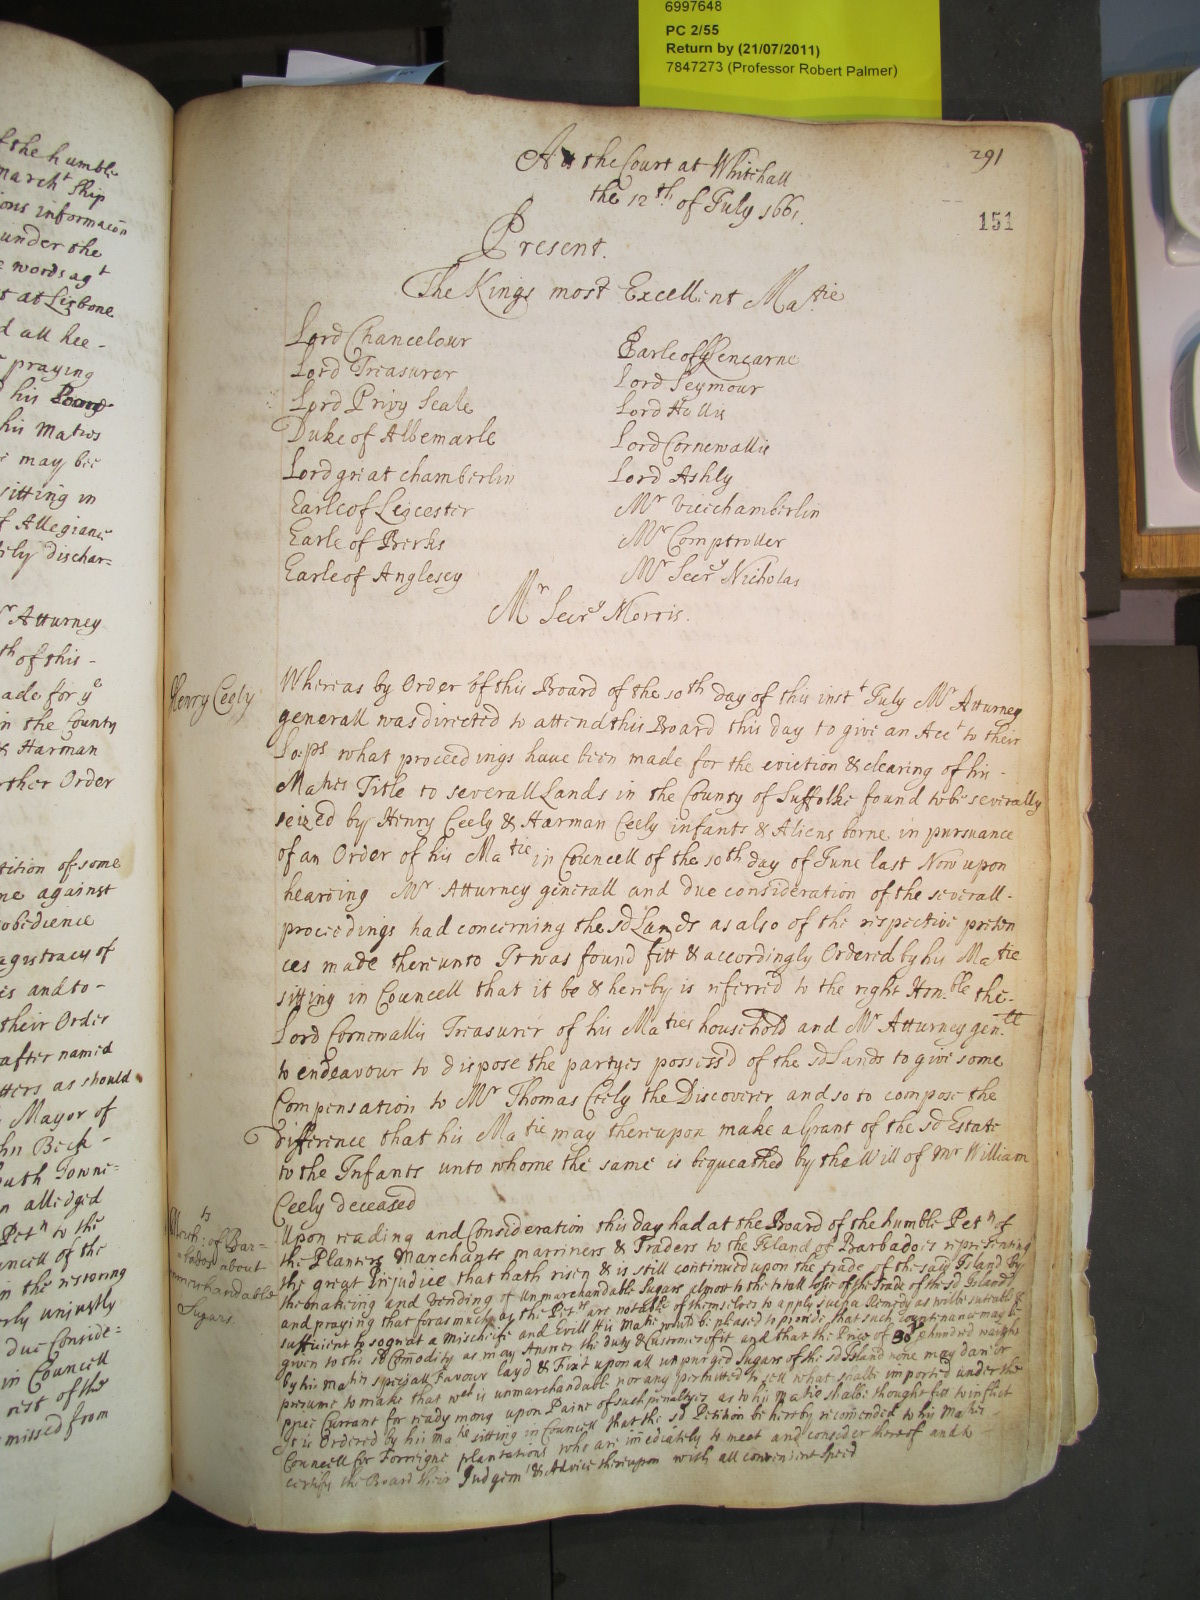 6997648
PC 2/55
Return by (21/07/2011)
7847273 (Professor Robert Palmer)
f the humble
march^t ship
ions informacōn
under the
words ag^t
at Lisbone
d all hee -
praying
his
his Ma^ties
may bee
sitting in
f Allegiance
ily dischar=
Atturney
th of this -
ade for y^e
in the County
& Harman
rther Order
tition of some
me against
obedience
agistracy of
es and to -
their Order
after named
tters as should
Mayor of
hn Beck -
outh Towne=
n alledged
Pet^n to the
uncell of the
n the restoring
rly unjustly
due Conside=
in Councell
rest of the
missed from
291
151
Att the Court at Whitehall
the 12^th of July 1661.
Present.
The Kings most Excellent Ma^tie
Lord Chancelour
Lord Treasurer
Lord Privy Seale
Duke of Albemarle
Lord great chamberlin
Earle of Leicester
Earle of Berks
Earle of Anglesey
Earle of Glencarne
Lord Seymour
Lord Hollis
Lord Cornewallis
Lord Ashly
M^r Vicechamberlin
M^r Comptroller
M^r Secr^y Nicholas
M^r Secr^y Morris.
Henry Ceely
Whereas by Order of this Board of the 10^th day of this inst^t July M^r Atturney
generall was directed to attend this Board this day to give an Acc^t to their
Lo:ps what proceedings have been made for the eviction & clearing of his -
Ma^ties Title to severall Lands in the County of Suffolke found to be severally
seized by Henry Ceely & Harman Ceely infants & Aliens borne in pursuance
of an Order of his Ma^tie in Councell of the 10^th day of June last Now upon
hearing M^r Atturney generall and due consideration of the severall -
proceedings had concerning the s^d Lands as also of the respective preten
ces made thereunto It was found fitt & accordingly Ordered by his Ma^tie
sitting in Councell that it be & hereby is referred to the right Hon:^ble the -
Lord Cornewallis Treasurer of his Ma^ties household and M^r Atturney gen:^ll
to endeavour to dispose the partyes possess'd of the s^d Lands to give some
Compensation to M^r Thomas Ceely the Discoverer and so to compose the
difference that his Ma^tie may thereupon make a Grant of the s^d Estate
to the Infants unto whome the same is bequeathed by the Will of M^r William
Ceely deceased
March:^ts of Bar=
=bados about
unmerchandable
Sugars.
Upon reading and Consideration this day had at the Board of the humble Pet^n of
the Planters Marchants marriners & Traders to the Island of Barbadoes representing
the great Injudice that hath risen & is still continued upon the trade of the said Island by
the making and Vending of Unmarchandable Sugars almost to the totall losse of the Trade of the s^d Island
and praying that forasmuch as the Pet^rs are not able of themselves to apply such a Remedy as wilbe suteable &
sufficient to so great a mischeife and Evill His Ma^tie would be pleased to provide that such Countenance may be
given to the s^d Comōdity as may Answer the duty & Customes of it and that the Price of 30^s p hundred waight
by his Ma^ties speciall Favour layd & Fixt upon all unpurged Sugars of the s^d Island none may dare or
presume to make that w^ch is unmarchandable nor any permitted to sell what shalbe imported under the
price Currant for ready mony upon Paine of such penaltyes as to his Ma^tie shalbe thought fitt to inflict
It is Ordered by his Ma^tie sitting in Councell that the s^d Petition be hereby recom̄ended to his Ma^ties
Councell for Forreigne plantations who are im̄ediately to meet and consider thereof and to
certify the Board their Judgem^t & Advice thereupon with all convenient speed